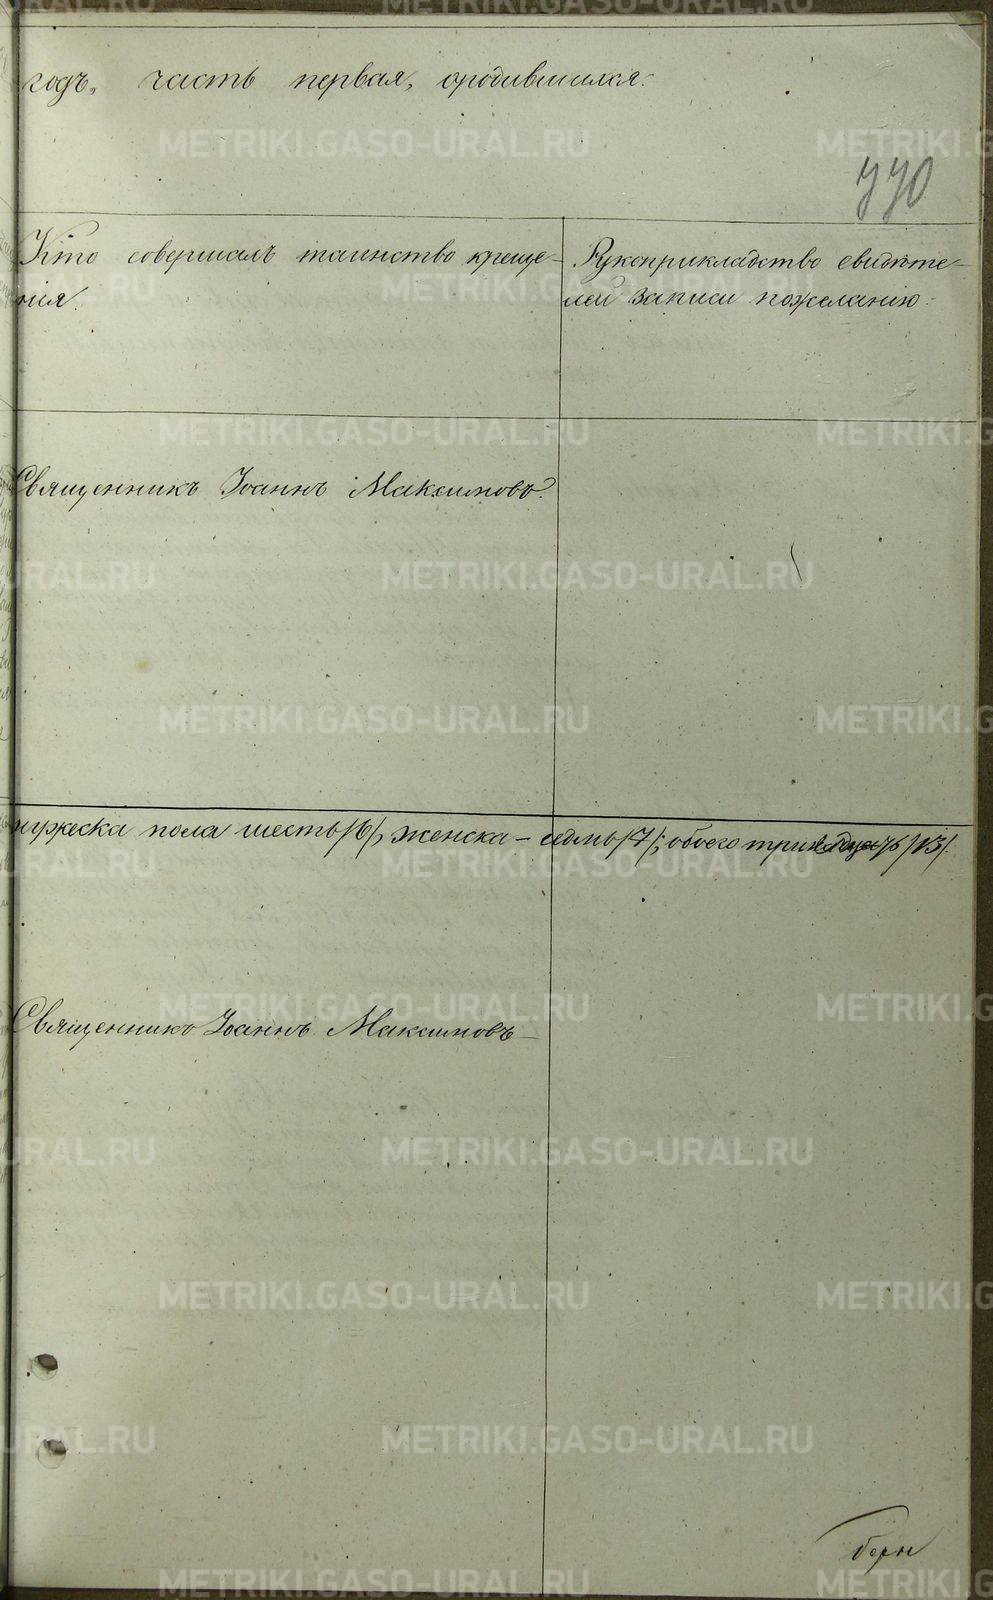 годъ, часть первая, ородившихся.
770
Кто совершалъ таинство креще-
нія.
Рукоприкладство свидѣте-
лей записи пожеланію.
Священникъ Іоаннъ Максимовъ.
мужеска пола шесть /6/, женска - седмь /7/; обоего тринадцать /13/.
Священникъ Іоаннъ Максимовъ
METRIKI.GASO-URAL.RU